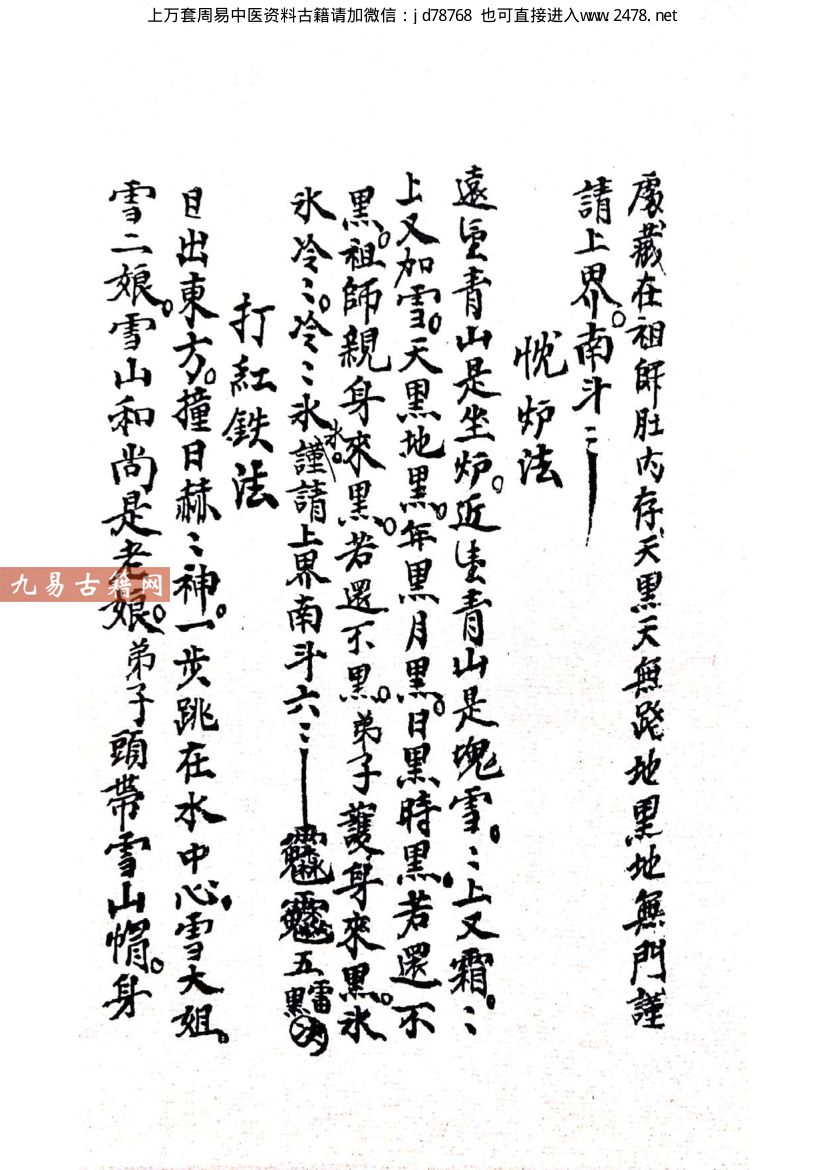 上万套周易中医资料古籍请加微信：jd78768 也可直接进入www.2478.net
處藏在祖師肚内存天黑天無路地黑地無門謹
請上界。南斗〻
炉法
遠青山是坐炉。近青山是塊雪。〻上又霜。〻
上又加雪。天黑地黑。年黑月黑。日黑時黑。若還不
黑。祖師親身來黑。若還不黑。弟子護身來黑。氷
氷冷〻。冷〻氷氷。謹請上界南斗六〻五雷黑
打紅鉄法
日出東方。撞日赫〻神。一步跳在水中心。雪大姐。
雪二娘。雪山和尚是老娘。弟子頭帶雪山帽。身
九易古籍网